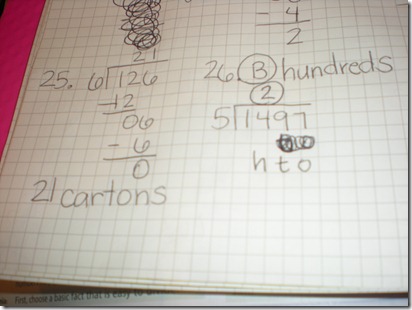 - 4
2
21
25. 6)126
-12
06
- 6
0
21 cartons
26. B hundreds
2
5)1497
h t o
First, choose a basic fact that is easy to